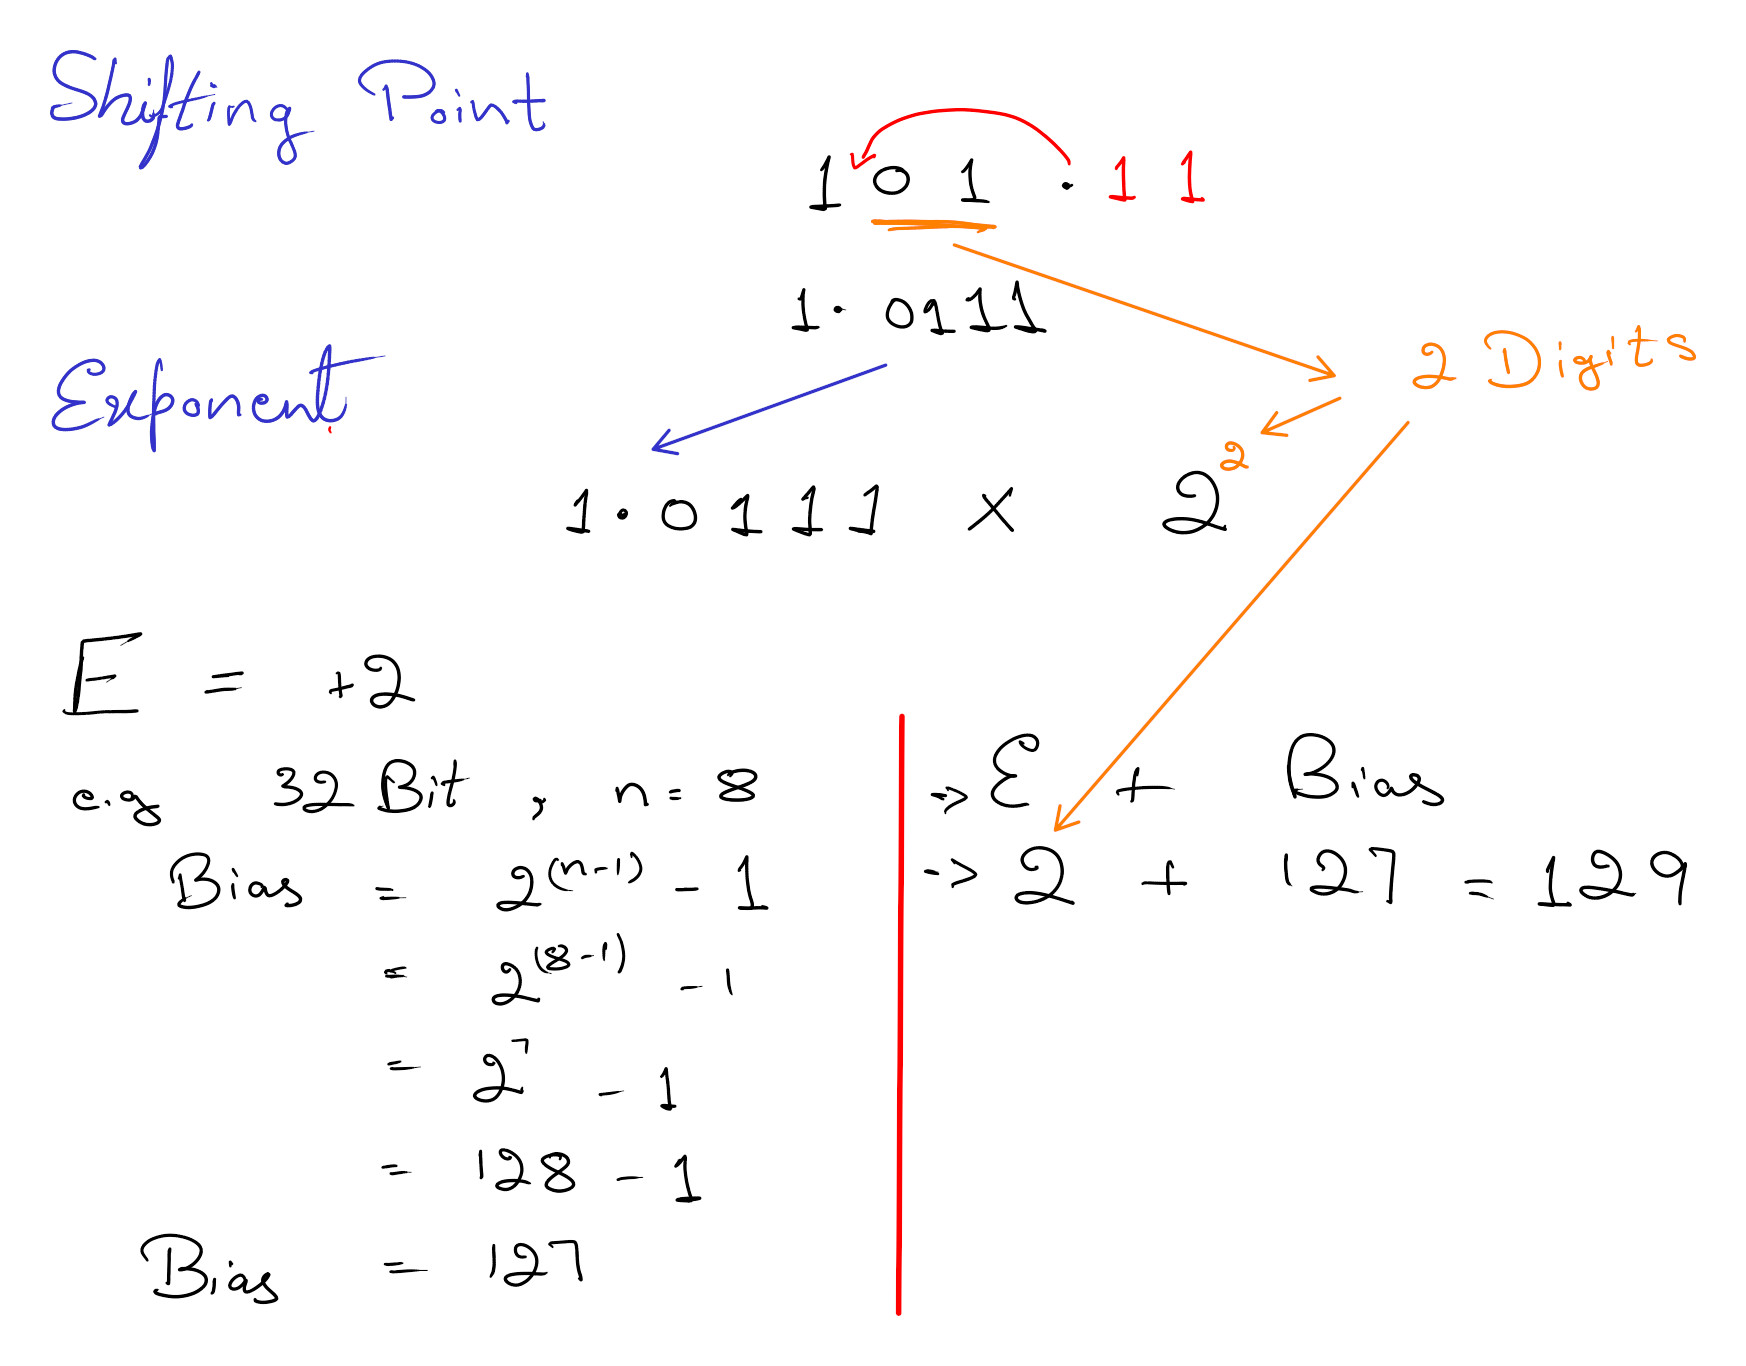 Shifting Point
101.11
1.0111
2 Digits
Exponent
1.0111 × 2²
E = +2
e.g 32 Bit, n = 8
Bias = 2^(n-1) - 1
= 2^(8-1) - 1
= 2⁷ - 1
= 128 - 1
Bias = 127
-> E + Bias
-> 2 + 127 = 129